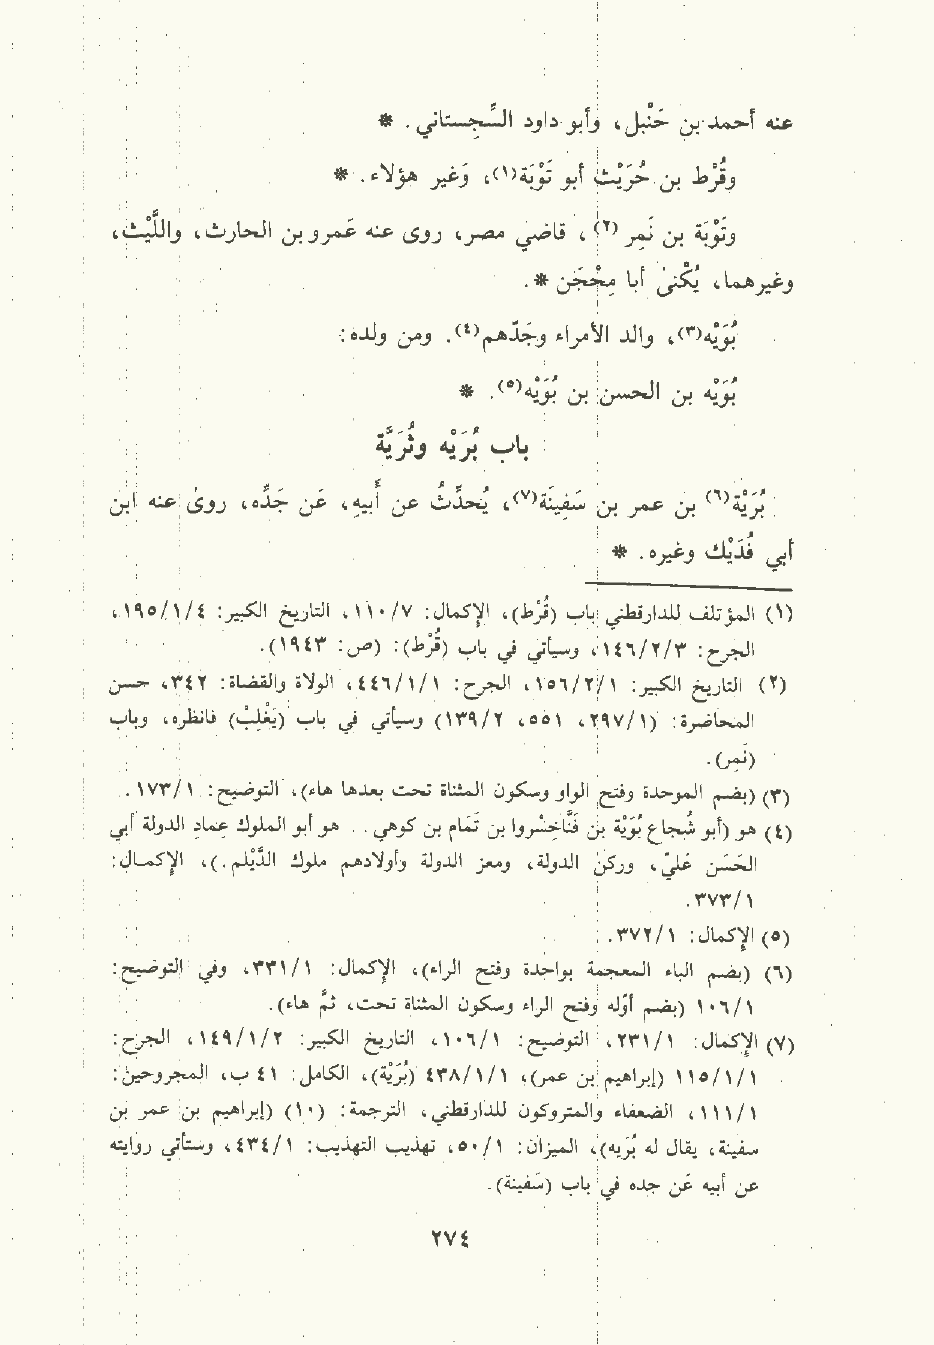 عنه أحمد بن حَنْبل، وأبو داود السِّجِستاني. *
وقُرْط بن حُرَيْث أبو تَوْبَة(١)، وَغير هؤلاء. *
وتَوْبَة بن نَمِر (٢)، قاضي مصر، روى عنه عَمرو بن الحارث، واللَّيْث،
وغيرهما، يُكْنىٰ أبا مِحْجَن *.
بُوَيْه(٣)، والد الأمراء وجَدّهم(٤). ومن ولده:
بُوَيْه بن الحسن بن بُوَيْه(٥). *
باب بُرَيْه وثُرَيَّة
بُرَيْة(٦) بن عمر بن سَفِينَة(٧)، يُحدِّثُ عن أَبيهِ، عَن جَدِّه، روىٰ عنه ابن
أبي فُدَيْك وغيره. *
(١) المؤتلف للدارقطني باب (قُرْط)، الإكمال: ٧/١١٠، التاريخ الكبير: ٤/١/١٩٥،
الجرح: ٣/٢/١٤٦، وسيأتي في باب (قُرْط): (ص: ١٩٤٣).
(٢) التاريخ الكبير: ١/٢/١٥٦، الجرح: ١/١/٤٤٦، الولاة والقضاة: ٣٤٢، حسن
المحاضرة: (١/٢٩٧، ٥٥١، ٢/١٣٩) وسيأتي في باب (تَغْلِبْ) فانظره، وباب
(نَمِر).
(٣) (بضم الموحدة وفتح الواو وسكون المثناة تحت بعدها هاء)، التوضيح: ١/١٧٣.
(٤) هو (أبو شُجاع بُوَيْة بن فَنَّاخِسْروا بن تَمَام بن كوهي . . هو أبو الملوك عمادِ الدولة أبي
الحَسَن عَليّ، وركن الدولة، ومعز الدولة وأولادهم ملوك الدَّيْلم.)، الإكمال:
١/٣٧٣.
(٥) الإكمال: ١/٣٧٢.
(٦) (بضم الباء المعجمة بواحدة وفتح الراء)، الإكمال: ١/٢٣١، وفي التوضيح:
١/١٠٦ (بضم أوّله وفتح الراء وسكون المثناة تحت، ثمَّ هاء).
(٧) الإكمال: ١/٢٣١، التوضيح: ١/١٠٦، التاريخ الكبير: ٢/١/١٤٩، الجرح:
١/١/١١٥ (إبراهيم بن عمر)، ١/١/٤٣٨ (بُرَيْة)، الكامل: ٤١ ب، المجروحين:
١/١١١، الضعفاء والمتروكون للدارقطني، الترجمة: (١٠) (إبراهيم بن عمر بن
سفينة، يقال له بُرَيه)، الميزان: ١/٥٠، تهذيب التهذيب: ١/٤٣٤، وستأتي روايته
عن أبيه عَن جده في باب (سَفينة).
٢٧٤